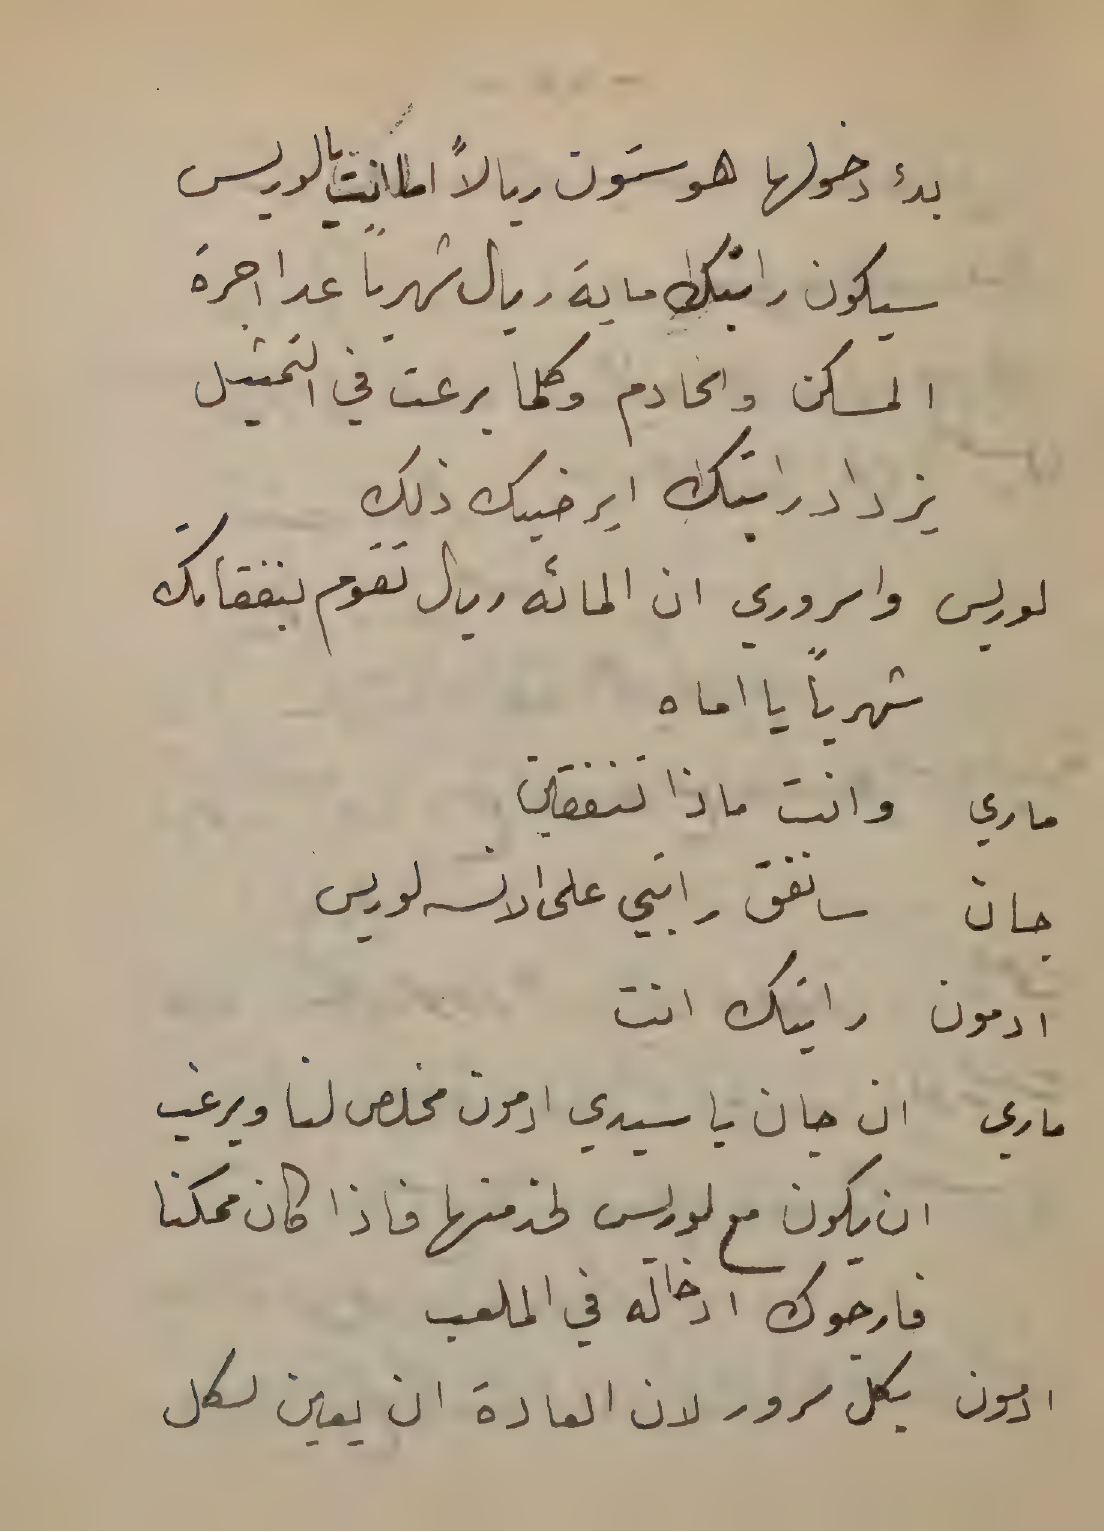 بدء دخولها هو ستون ريالاً اما انت يا لوريس
سيكون راتبك ماية ريال شهرياً عدا اجرة
المسكن والخادم وكلما برعت في التمثيل
يزداد راتبك ايرضيك ذلك
لوريس واسروري ان المائه ريال تقوم بنفقاتك
شهرياً يا اماه
ماري وانت ماذا تنفقين
جان سانفق راتبي على الانسه لوريس
ادمون راتبك انت
ماري ان جان يا سيدي ادمون مخلص لنا ويرغب
ان يكون مع لوريس لخدمتها فاذا كان ممكنا
فارجوك ادخاله في الملعب
ادمون بكل سرور لان العادة ان يعين لكل